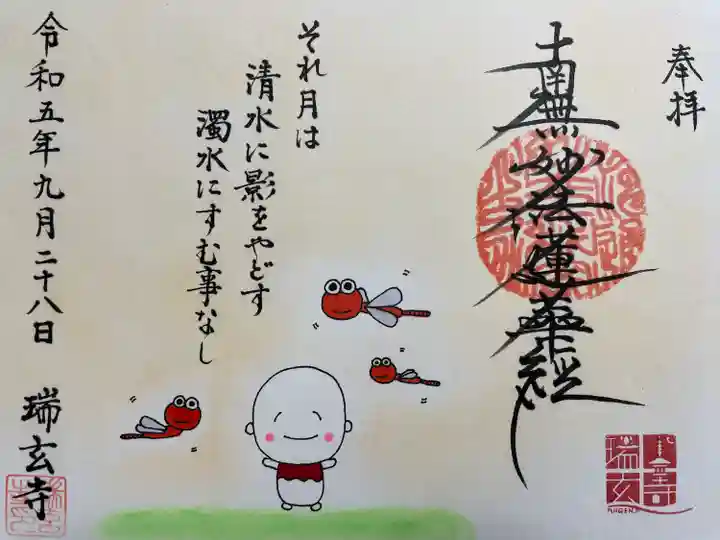 奉拝
南無妙法蓮華経
それ月は
清水に影をやどす
濁水にすむ事なし
令和五年九月二十八日 瑞玄寺
瑞玄寺
ZUIGENJI